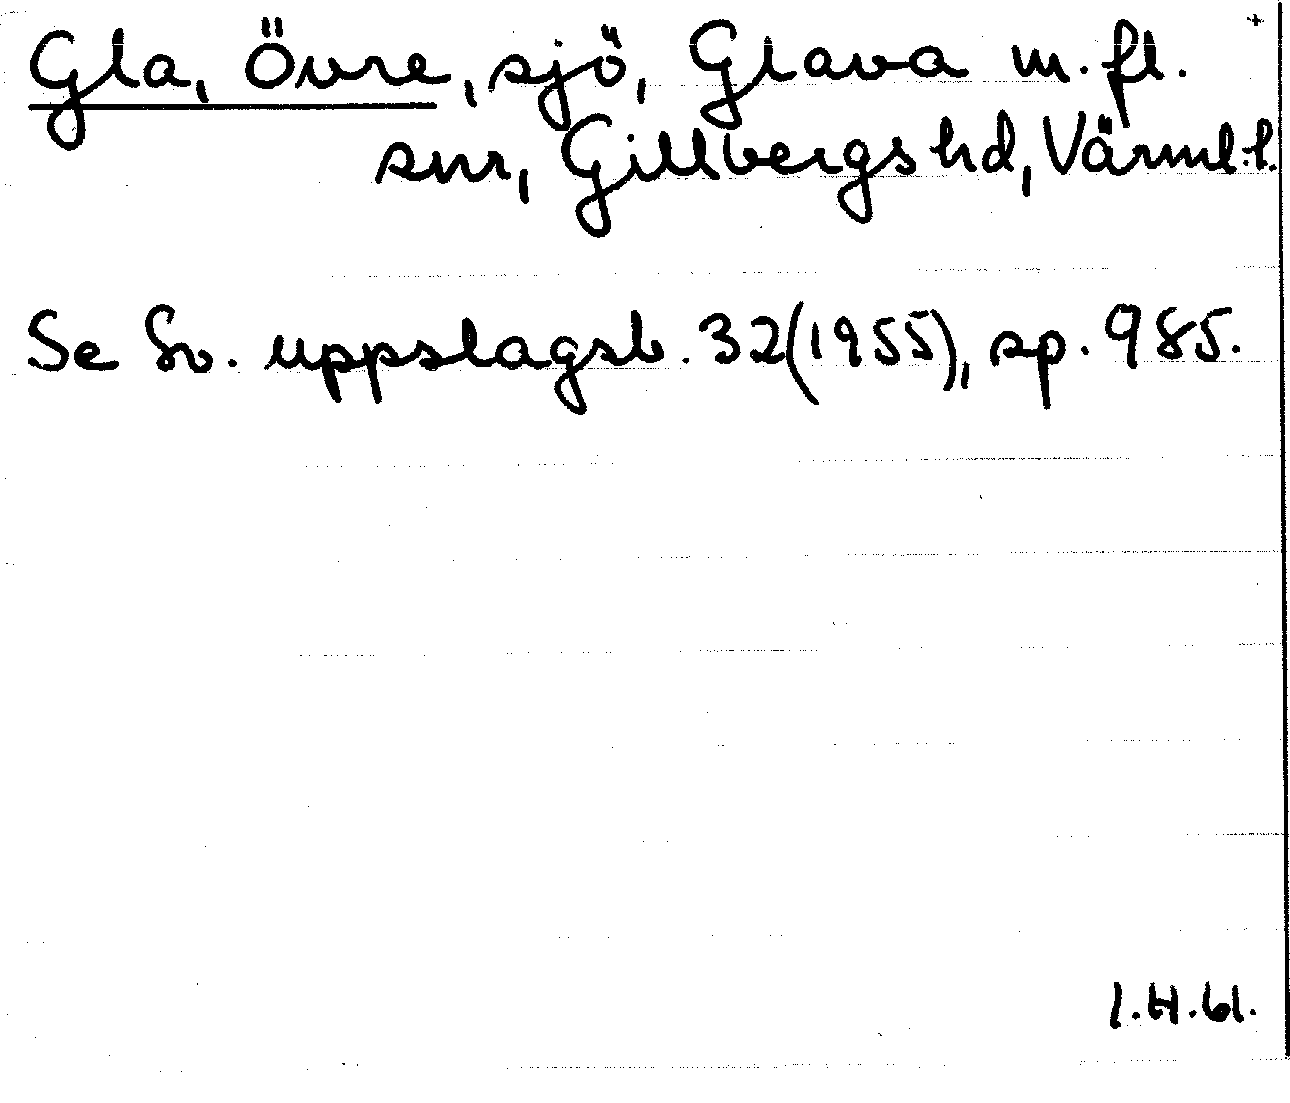 Gla, Övre, sjö, Glava m.fl.
snr, Gillbergs hd, Värml.l.
Se Sv. uppslagsb. 32(1955), sp. 985.
I.H.61.